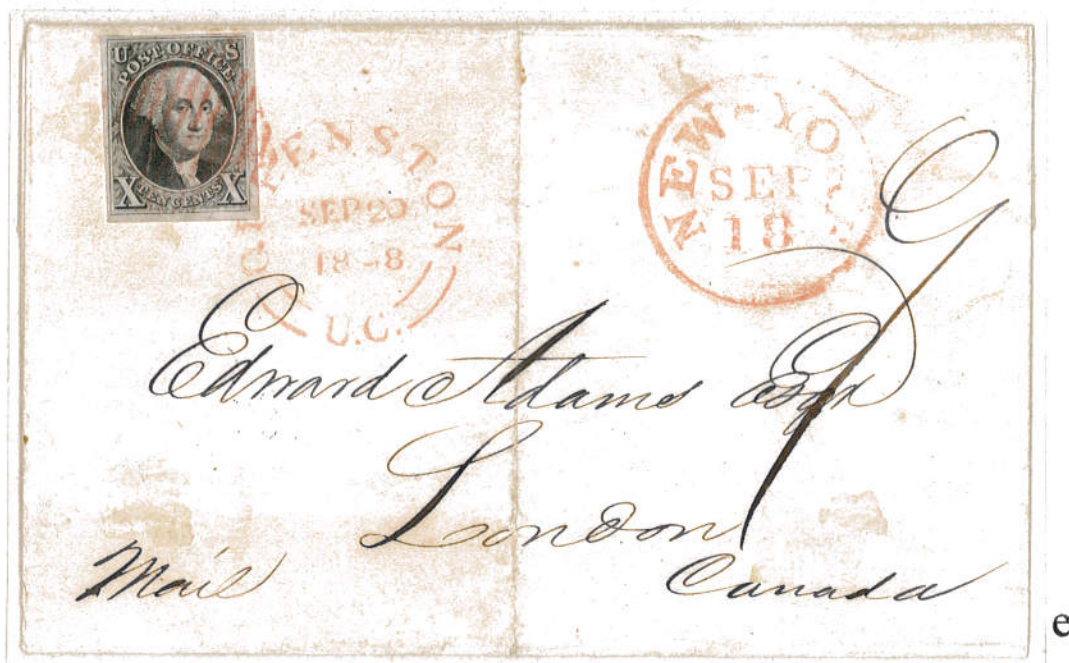 U S
POST OFFICE
X TEN CENTS X
SEP 20
U.C.
NEW-YO
SEP
18
Edward Adams Esqr
London
Mail
Canada
e